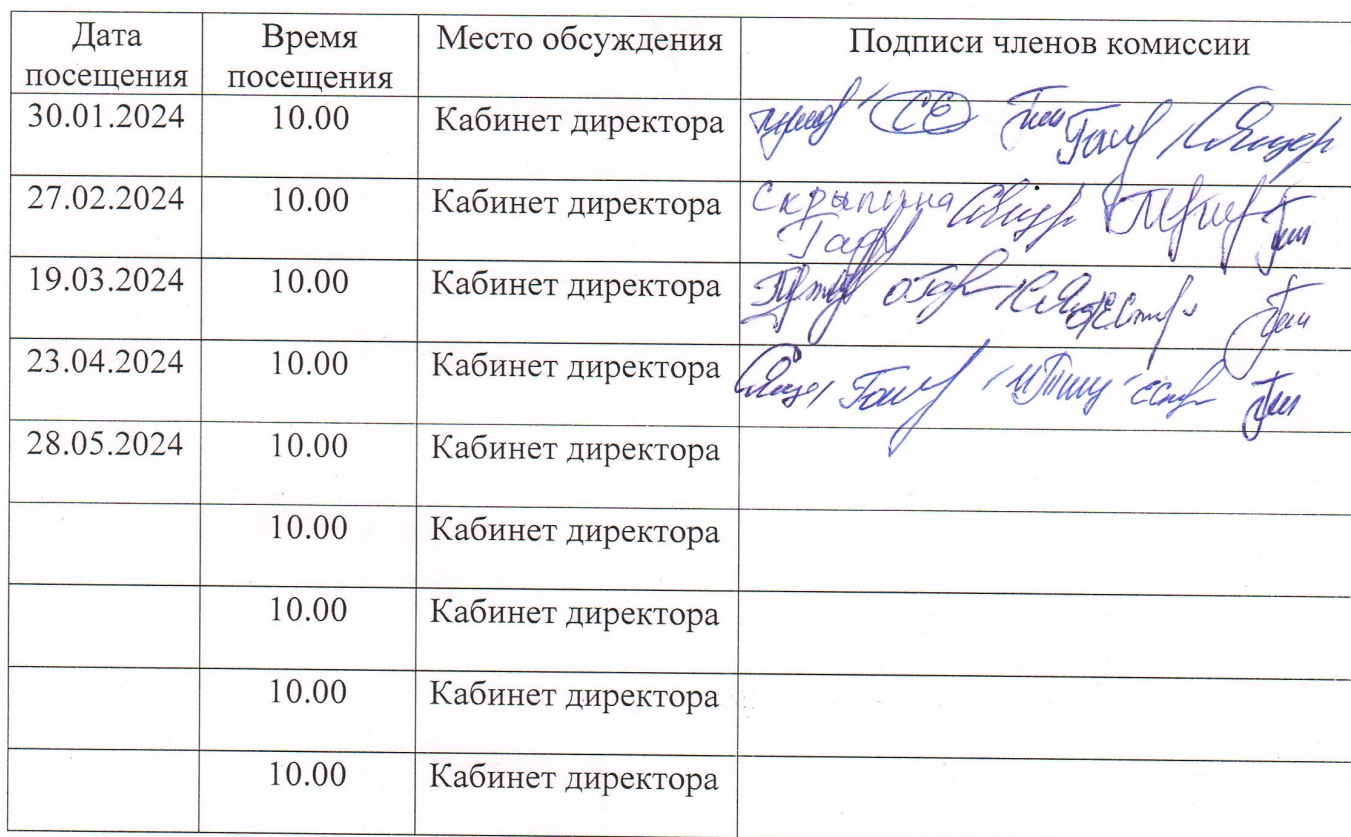 Дата Время Место обсуждения Подписи членов комиссии
посещения посещения
30.01.2024 10.00 Кабинет директора
27.02.2024 10.00 Кабинет директора Скрыпина
19.03.2024 10.00 Кабинет директора
23.04.2024 10.00 Кабинет директора
28.05.2024 10.00 Кабинет директора
10.00 Кабинет директора
10.00 Кабинет директора
10.00 Кабинет директора
10.00 Кабинет директора